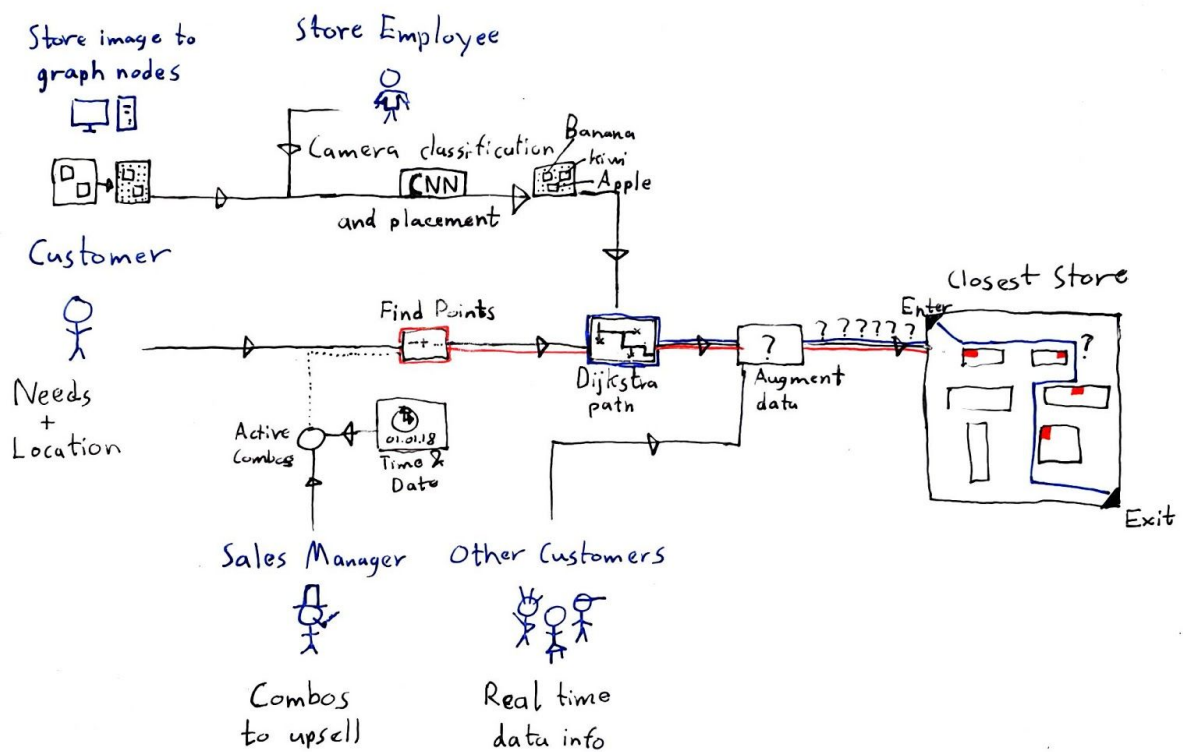 Store image to
graph nodes
Store Employee
Camera classification
CNN
and placement
Banana
kiwi
Apple
Customer
Needs
+
Location
Find Points
-+-
Dijkstra
path
?
Augment
data
??????
Closest Store
Enter
?
Exit
Active
Combos
01.01.18
Time &
Date
Sales Manager
Combos
to upsell
Other Customers
Real time
data info